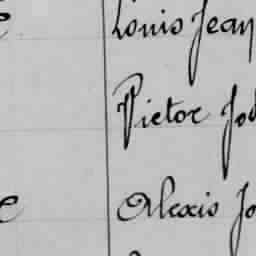 Louis Jean
Pietor Jo
Alexis Jo